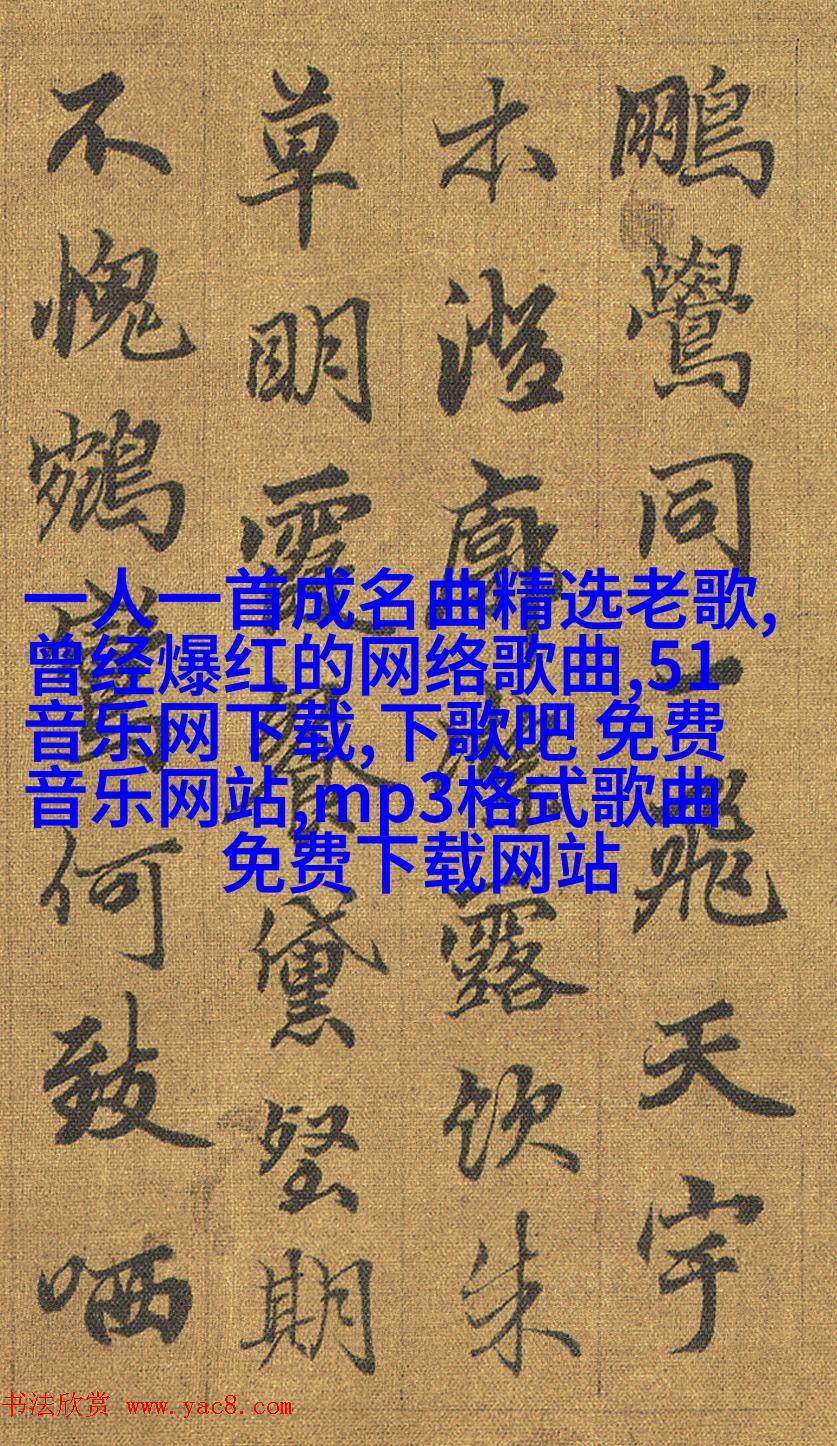 鵬鷽同一飛天宇
本澄廓露飲朱
草明霞餐黛壑期
不愧鸞何致哂
一人一首成名曲精选老歌,
曾经爆红的网络歌曲,51
音乐网下载,下歌吧 免费
音乐网站,mp3格式歌曲
免费下载网站
书法欣赏 www.yac8.com